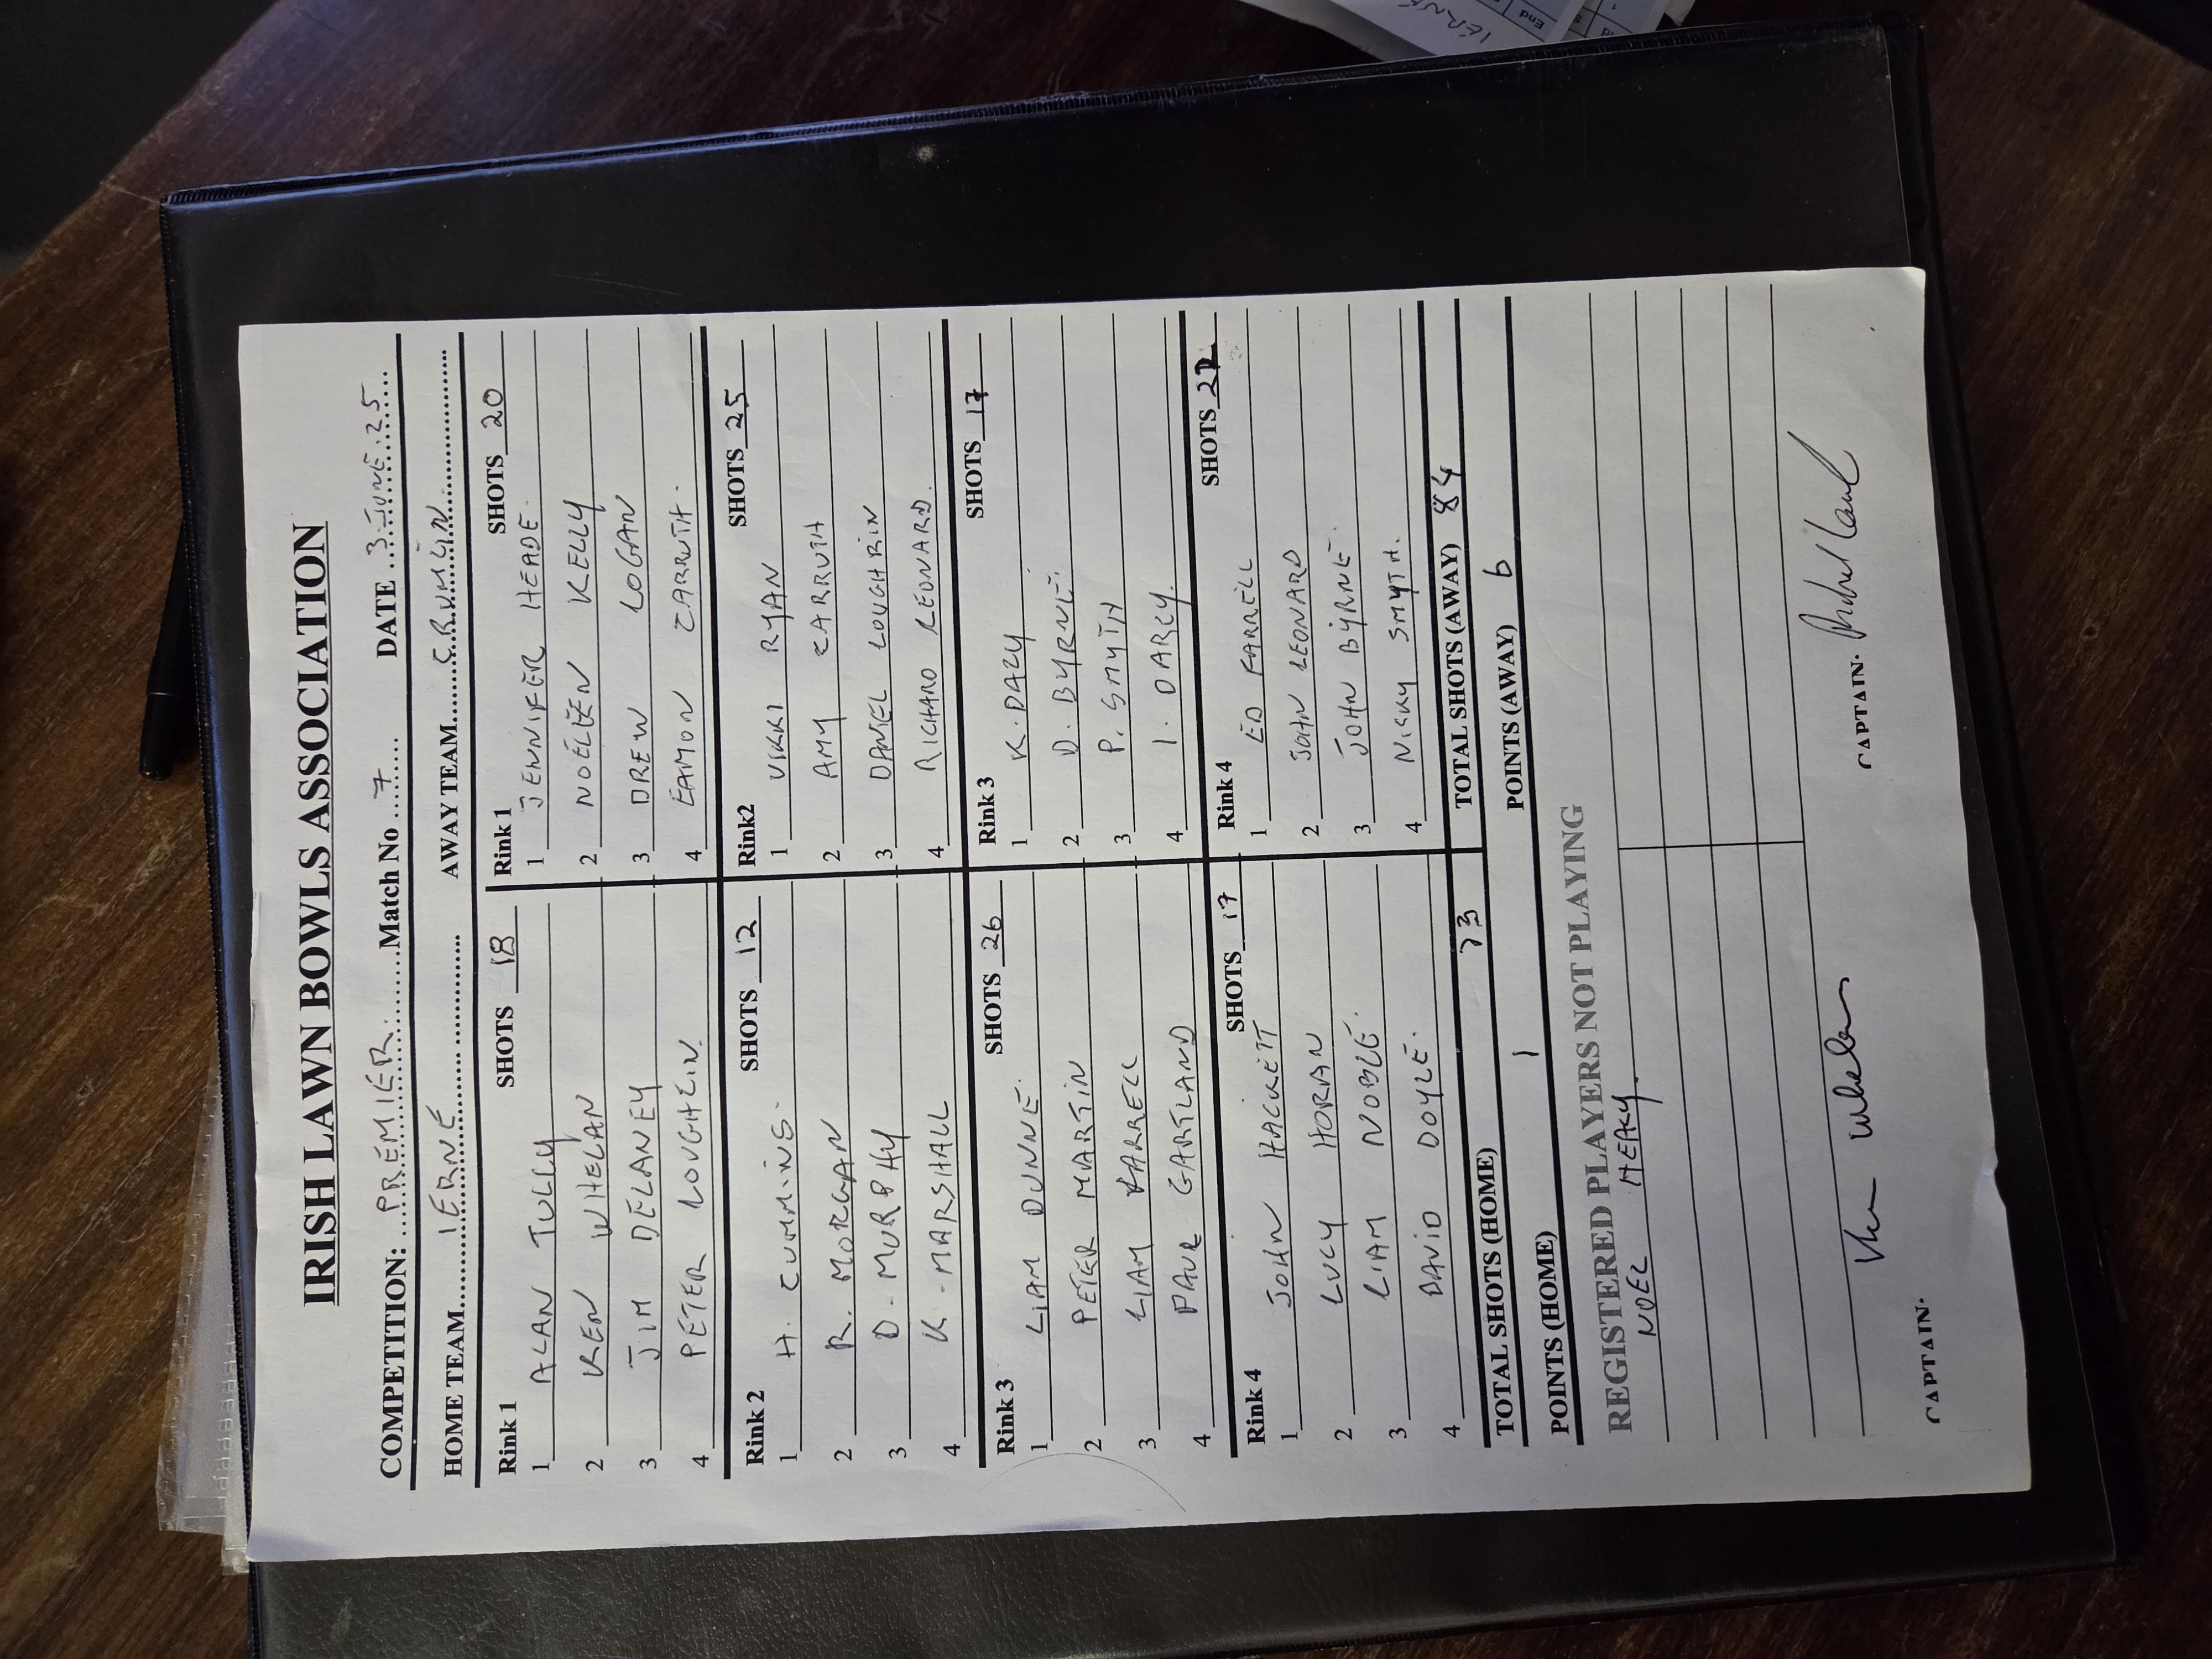 IRISH LAWN BOWLS ASSOCIATION
COMPETITION: PREMIER Match No 7 DATE 3 JUNE 25
HOME TEAM IERNE AWAY TEAM CRUMLIN
Rink 1 SHOTS 18 Rink 1 SHOTS 20
1 ALAN TULLY 1 JENNIFER HEADE
2 KEN WHELAN 2 NOELEEN KELLY
3 JIM DELANEY 3 DREW LOGAN
4 PETER LOUGHLIN 4 EAMON CARRUTH
Rink 2 SHOTS 12 Rink2 SHOTS 25
1 H. CUMMINS 1 VIKKI RYAN
2 R. MORGAN 2 AMY CARRUTH
3 D. MURPHY 3 DANIEL LOUGHRIN
4 K. MARSHALL 4 RICHARD LEONARD.
Rink 3 SHOTS 26 Rink 3 SHOTS 17
1 LIAM DUNNE 1 K. DALY
2 PETER MARTIN 2 D. BYRNE
3 LIAM FARRELL 3 P. SMYTH
4 PAUL GARTLAND 4 I. DARCY.
Rink 4 SHOTS 17 Rink 4 SHOTS 22
1 JOHN HACKETT 1 ED FARRELL
2 LUCY HORAN 2 JOHN LEONARD
3 LIAM NOBLE. 3 JOHN BYRNE.
4 DAVID DOYLE. 4 NICKY SMYTH.
TOTAL SHOTS (HOME) 73 TOTAL SHOTS (AWAY) 84
POINTS (HOME) 1 POINTS (AWAY) 6
REGISTERED PLAYERS NOT PLAYING
NOEL HEALY.
Ken Whelan
CAPTAIN. CAPTAIN.
IERNE
End